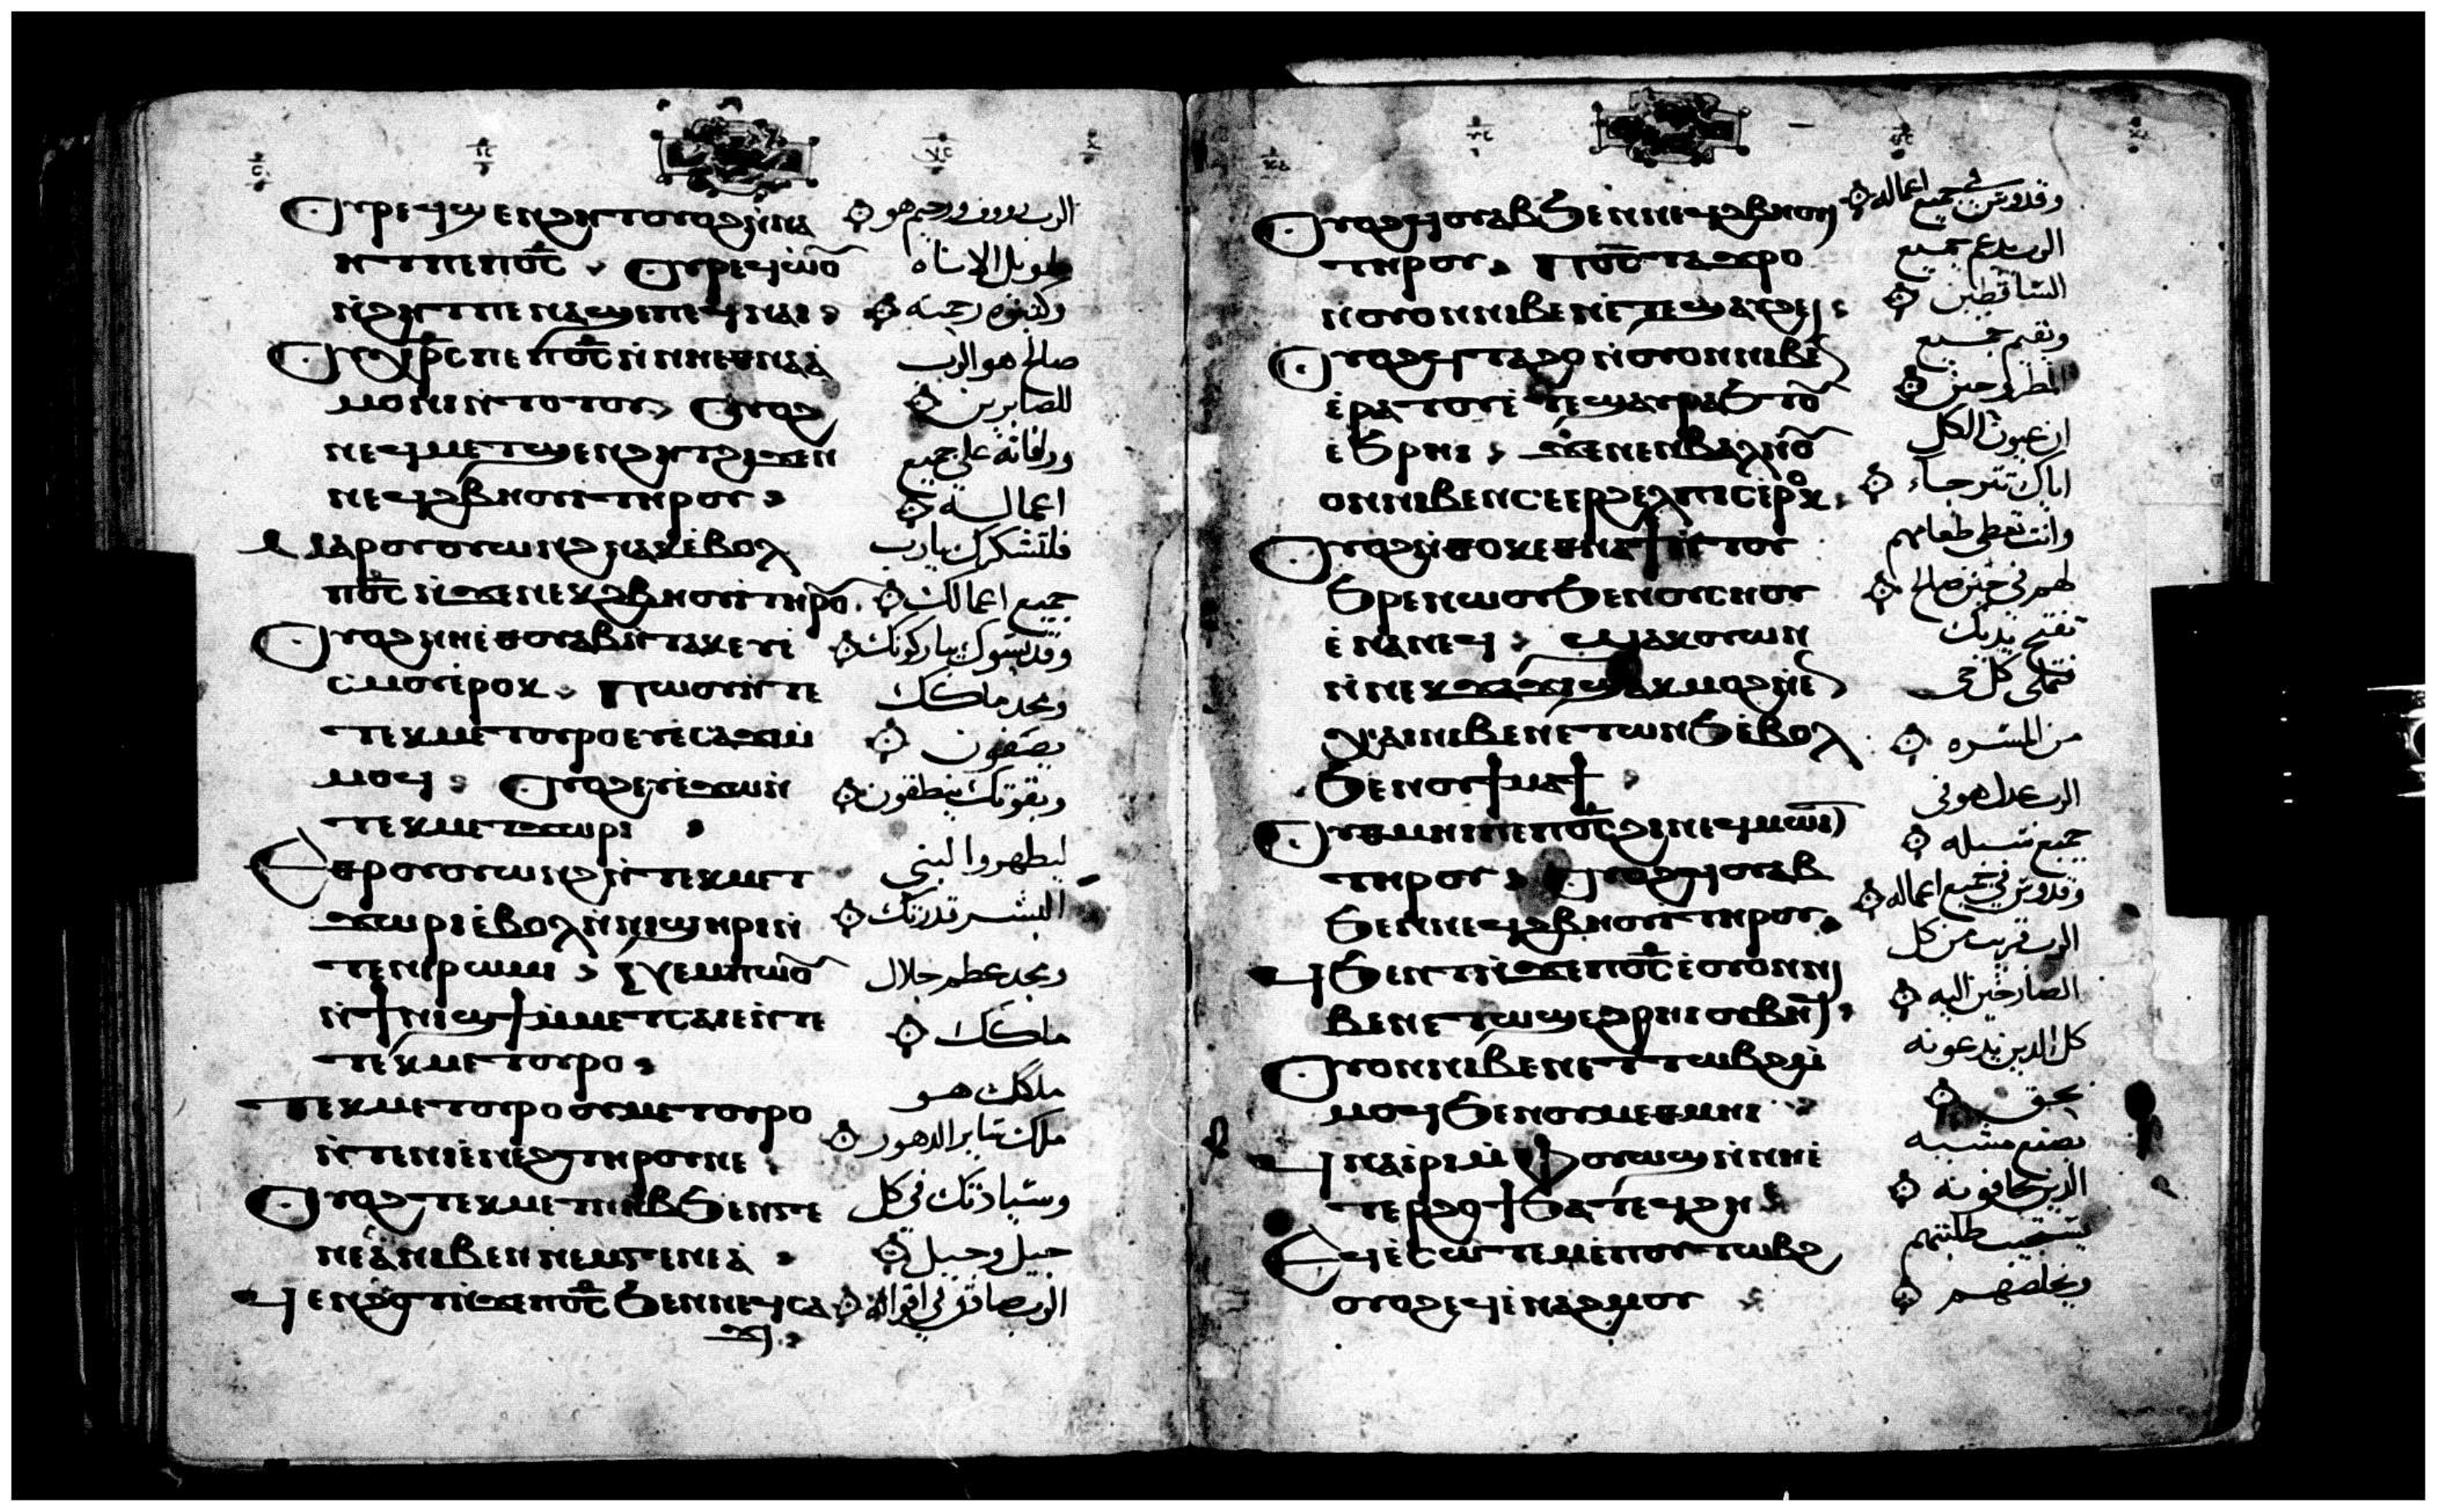 Ⲟⲩⲣⲉϥϣⲉⲛϩⲏⲧ ⲟⲩⲟϩ ⲛⲛⲁ
ⲏⲧ ⲡⲉ ⲡⲟ̅ⲥ̅ ⲟⲩⲣⲉϥⲱⲟ̅
ⲛ̀ϩⲏⲧ ⲡⲉ ⲛⲁϣⲉ ⲡⲉϥⲛⲁⲓ
Ⲟⲩⲭⲣ̅ⲥ ⲡⲉ ⲡⲟ̅ⲥ̅ ⲛ̀ⲛⲏⲉⲑⲛⲁⲁ̀
ⲙⲟⲛⲓ ⲛ̀ⲧⲟⲧⲟⲩ ⲟⲩⲟϩ
ⲛⲉϥⲙⲉⲧϣⲉⲛϩⲏⲧ ϩⲓϫⲉⲛ
ⲛⲉϥϩⲃⲏⲟⲩⲓ ⲧⲏⲣⲟⲩ
Ⲙⲁⲣⲟⲩⲟⲩⲱⲛϩ ⲛⲁⲕ ⲉ̀ⲃⲟⲗ
ⲡⲟ̅ⲥ̅ ⲛ̀ϫⲉ ⲛⲉⲕϩⲃⲏⲟⲩⲓ ⲧⲏⲣⲟ̅
Ⲟⲩⲟϩ ⲛⲏⲉ̀ⲑⲟⲩⲁⲃ ⲛ̀ⲧⲁⲕ ⲉⲩⲉ̀
ⲥⲙⲟⲩ ⲉ̀ⲣⲟⲕ ⲡⲱⲟⲩ ⲛ̀ⲧⲉ
ⲧⲉⲕⲙⲉⲧⲟⲩⲣⲟ ⲉⲩⲉ̀ⲥⲁϫⲓ ⲙ̀
ⲙⲟϥ ⲟⲩⲟϩ ⲉⲩⲉ̀ϫⲱ ⲛ̀
ⲧⲉⲕⲙⲉⲧϫⲱⲣⲓ
Ⲉⲑⲣⲟⲩⲟⲩⲱⲛϩ ⲛ̀ⲧⲉⲕⲙⲉⲧ
ϫⲱⲣⲓ ⲉ̀ⲃⲟⲗ ⲛ̀ⲛⲓϣⲏⲣⲓ ⲛ̀
ⲧⲉ ⲛⲓⲣⲱⲙⲓ ⲛⲉⲙ ⲡⲱⲟ̅
ⲛ̀ϯⲛⲓϣϯ ⲙ̀ⲙⲉⲧⲥⲁⲓⲉ ⲛ̀ⲧⲉ
ⲧⲉⲕⲙⲉⲧⲟⲩⲣⲟ
Ⲧⲉⲕⲙⲉⲧⲟⲩⲣⲟ ⲟⲩⲙⲉⲧⲟⲩⲣⲟ
ⲛ̀ⲧⲉ ⲛⲓⲉ̀ⲛⲉϩ ⲧⲏⲣⲟⲩ ⲧⲉ
Ⲟⲩⲟϩ ⲧⲉⲕⲙⲉⲧⲛⲏⲃ ϧⲉⲛ ⲅⲉ
ⲛⲉⲁ̀ ⲛⲓⲃⲉⲛ ⲛⲉⲙ ⲅⲉⲛⲉⲁ̀
Ϥⲉⲛϩⲟⲧ ⲛ̀ϫⲉ ⲡⲟ̅ⲥ̅ ϧⲉⲛ ⲛⲉϥⲥⲁ
ϫⲓ
الرب رووف ورحيم هو
طويل الاناه
وكثيره رحمته
صالح هو الرب
للصابرين
ورافاته على جميع
اعماله
فلتشكرك يارب
جميع اعمالك
وقديسوك يباركونك
ومجد ملكك
يصفون
وبقوتك ينطقون
ليظهروا لبني
البشر قدرتك
ومجد عظم جلال
ملكك
ملكك هو
ملك ساير الدهور
وسيادتك في كل
جيل وجيل
الرب صادق في اقواله
Ⲟⲩⲟϩ ϥⲟⲩⲁⲃ ϧⲉⲛ ⲛⲉϥϩⲃⲏⲟⲩⲓ
ⲧⲏⲣⲟⲩ ⲡⲟ̅ⲥ̅ ⲧⲁϫⲣⲟ
ⲛ̀ⲟⲩⲟⲛ ⲛⲓⲃⲉⲛ ⲉ̀ⲧⲉϣⲁⲩϩⲉⲓ
Ⲟⲩⲟϩ ϥⲧⲁϩⲟ ⲛ̀ⲟⲩⲟⲛ ⲛⲓⲃⲉ̅
ⲉ̀ⲣⲁⲧⲟⲩ ⲉ̀ⲧⲉϣⲁⲩⲣⲁϧⲧⲟ̅
ⲉ̀ϧⲣⲏⲓ ϫⲉ ⲛⲉⲛⲃⲁⲗ ⲛ̀ⲟ̅
ⲟⲛ ⲛⲓⲃⲉⲛ ⲥⲉⲉⲣϩⲉⲗⲡⲓⲥ ⲉ̀ⲣⲟⲕ
Ⲟⲩⲟϩ ⲛ̀ⲑⲟⲕ ⲉⲑⲛⲁϯ ⲛ̀ⲧⲟⲩ
ϧⲣⲉ ⲛⲱⲟⲩ ϧⲉⲛ ⲟⲩⲥⲏⲟⲩ
ⲉ̀ⲛⲁⲛⲉϥ ϣⲁⲕⲟⲩⲱⲛ
ⲛ̀ⲛⲉⲕϫⲓϫ ϣⲁⲕⲙⲟϩ ⲛ̀
ⲍⲱⲟⲛ ⲛⲓⲃⲉⲛ ⲉⲧⲱⲛϧ ⲉ̀ⲃⲟⲗ
ϧⲉⲛ ⲟⲩϯⲙⲁϯ
Ⲟⲩⲑⲙⲏⲓ ⲡⲉ ⲡⲟ̅ⲥ̅ ϩⲓ ⲛⲉϥⲙⲱⲓⲧ
ⲧⲏⲣⲟⲩ ⲟⲩⲟϩ ϥⲟⲩⲁⲃ
ϧⲉⲛ ⲛⲉϥϩⲃⲏⲟⲩⲓ ⲧⲏⲣⲟⲩ
Ϥϧⲉⲛⲧ ⲛ̀ϫⲉ ⲡⲟ̅ⲥ̅ ⲉ̀ⲟⲩⲟⲛ ⲛⲓ
ⲃⲉⲛ ⲉⲧⲱϣ ⲉ̀ϩⲣⲏⲓ ⲟⲩⲃⲏϥ
Ⲟⲩⲟⲛ ⲛⲓⲃⲉⲛ ⲉⲧⲧⲱⲃϩ ⲙ̀
ⲙⲟϥ ϧⲉⲛ ⲟⲩⲙⲉⲑⲙⲏⲓ
Ϥⲛⲁⲓ̀ⲣⲓ ⲙ̀ⲫⲟⲩⲱϣ ⲛ̀ⲛⲏⲉ̀
ⲧⲉⲣϩⲟϯ ϧⲁ ⲧⲉϥϩⲏ
Ⲉϥⲉ̀ⲥⲱⲧⲉⲙ ⲉ̀ⲡⲟⲩⲧⲱⲃϩ
ⲟⲩⲟϩ ⲉϥⲉ̀ⲛⲁϩⲙⲟⲩ
وقدوس في جميع اعماله
الرب يدعم جميع
الساقطين
ويقيم جميع
المطروحين
ان عيون الكل
اياك تترجاء
وانت تعطي طعامهم
لهم في حين صالح
تفتح يديك
فتملي كل حي
من المسره
الرب عدل هو في
جميع سبله
وقدوس في جميع اعماله
الرب قريب من كل
الصارخين اليه
كل الذين يدعونه
بحق
يصنع مشيه
الذين يخافونه
يستجيب طلبتهم
ويخلصهم